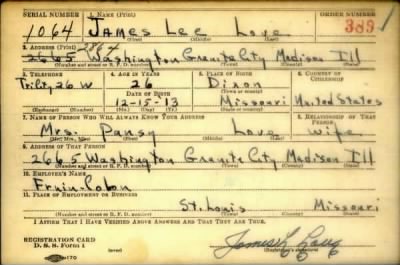 SERIAL NUMBER 1. NAME (Print) ORDER NUMBER
1064 James Lee Love 389
(First) (Middle) (Last)
2. ADDRESS (Print) 2864
2665 Washington Granite City Madison Ill
(Number and street or R. F. D. number) (Town) (County) (State)
3. TELEPHONE 4. AGE IN YEARS 5. PLACE OF BIRTH 6. COUNTRY OF CITIZENSHIP
26 Dixon
DATE OF BIRTH (Town or county)
12-15-13 Missouri United States
(Exchange) (Number) (Mo.) (Day) (Yr.) (State or country)
7. NAME OF PERSON WHO WILL ALWAYS KNOW YOUR ADDRESS 8. RELATIONSHIP OF THAT PERSON
Mrs. Pansy Love wife
(Mr., Mrs., Miss) (First) (Middle) (Last)
9. ADDRESS OF THAT PERSON
2665 Washington Granite City Madison Ill
(Number and street or R. F. D. number) (Town) (County) (State)
10. EMPLOYER'S NAME
Fruin-Colon
11. PLACE OF EMPLOYMENT OR BUSINESS
St. Louis Missouri
(Number and street or R. F. D. number) (Town) (County) (State)
I AFFIRM THAT I HAVE VERIFIED ABOVE ANSWERS AND THAT THEY ARE TRUE.
REGISTRATION CARD
D. S. S. Form 1
(over) (Registrant's signature)